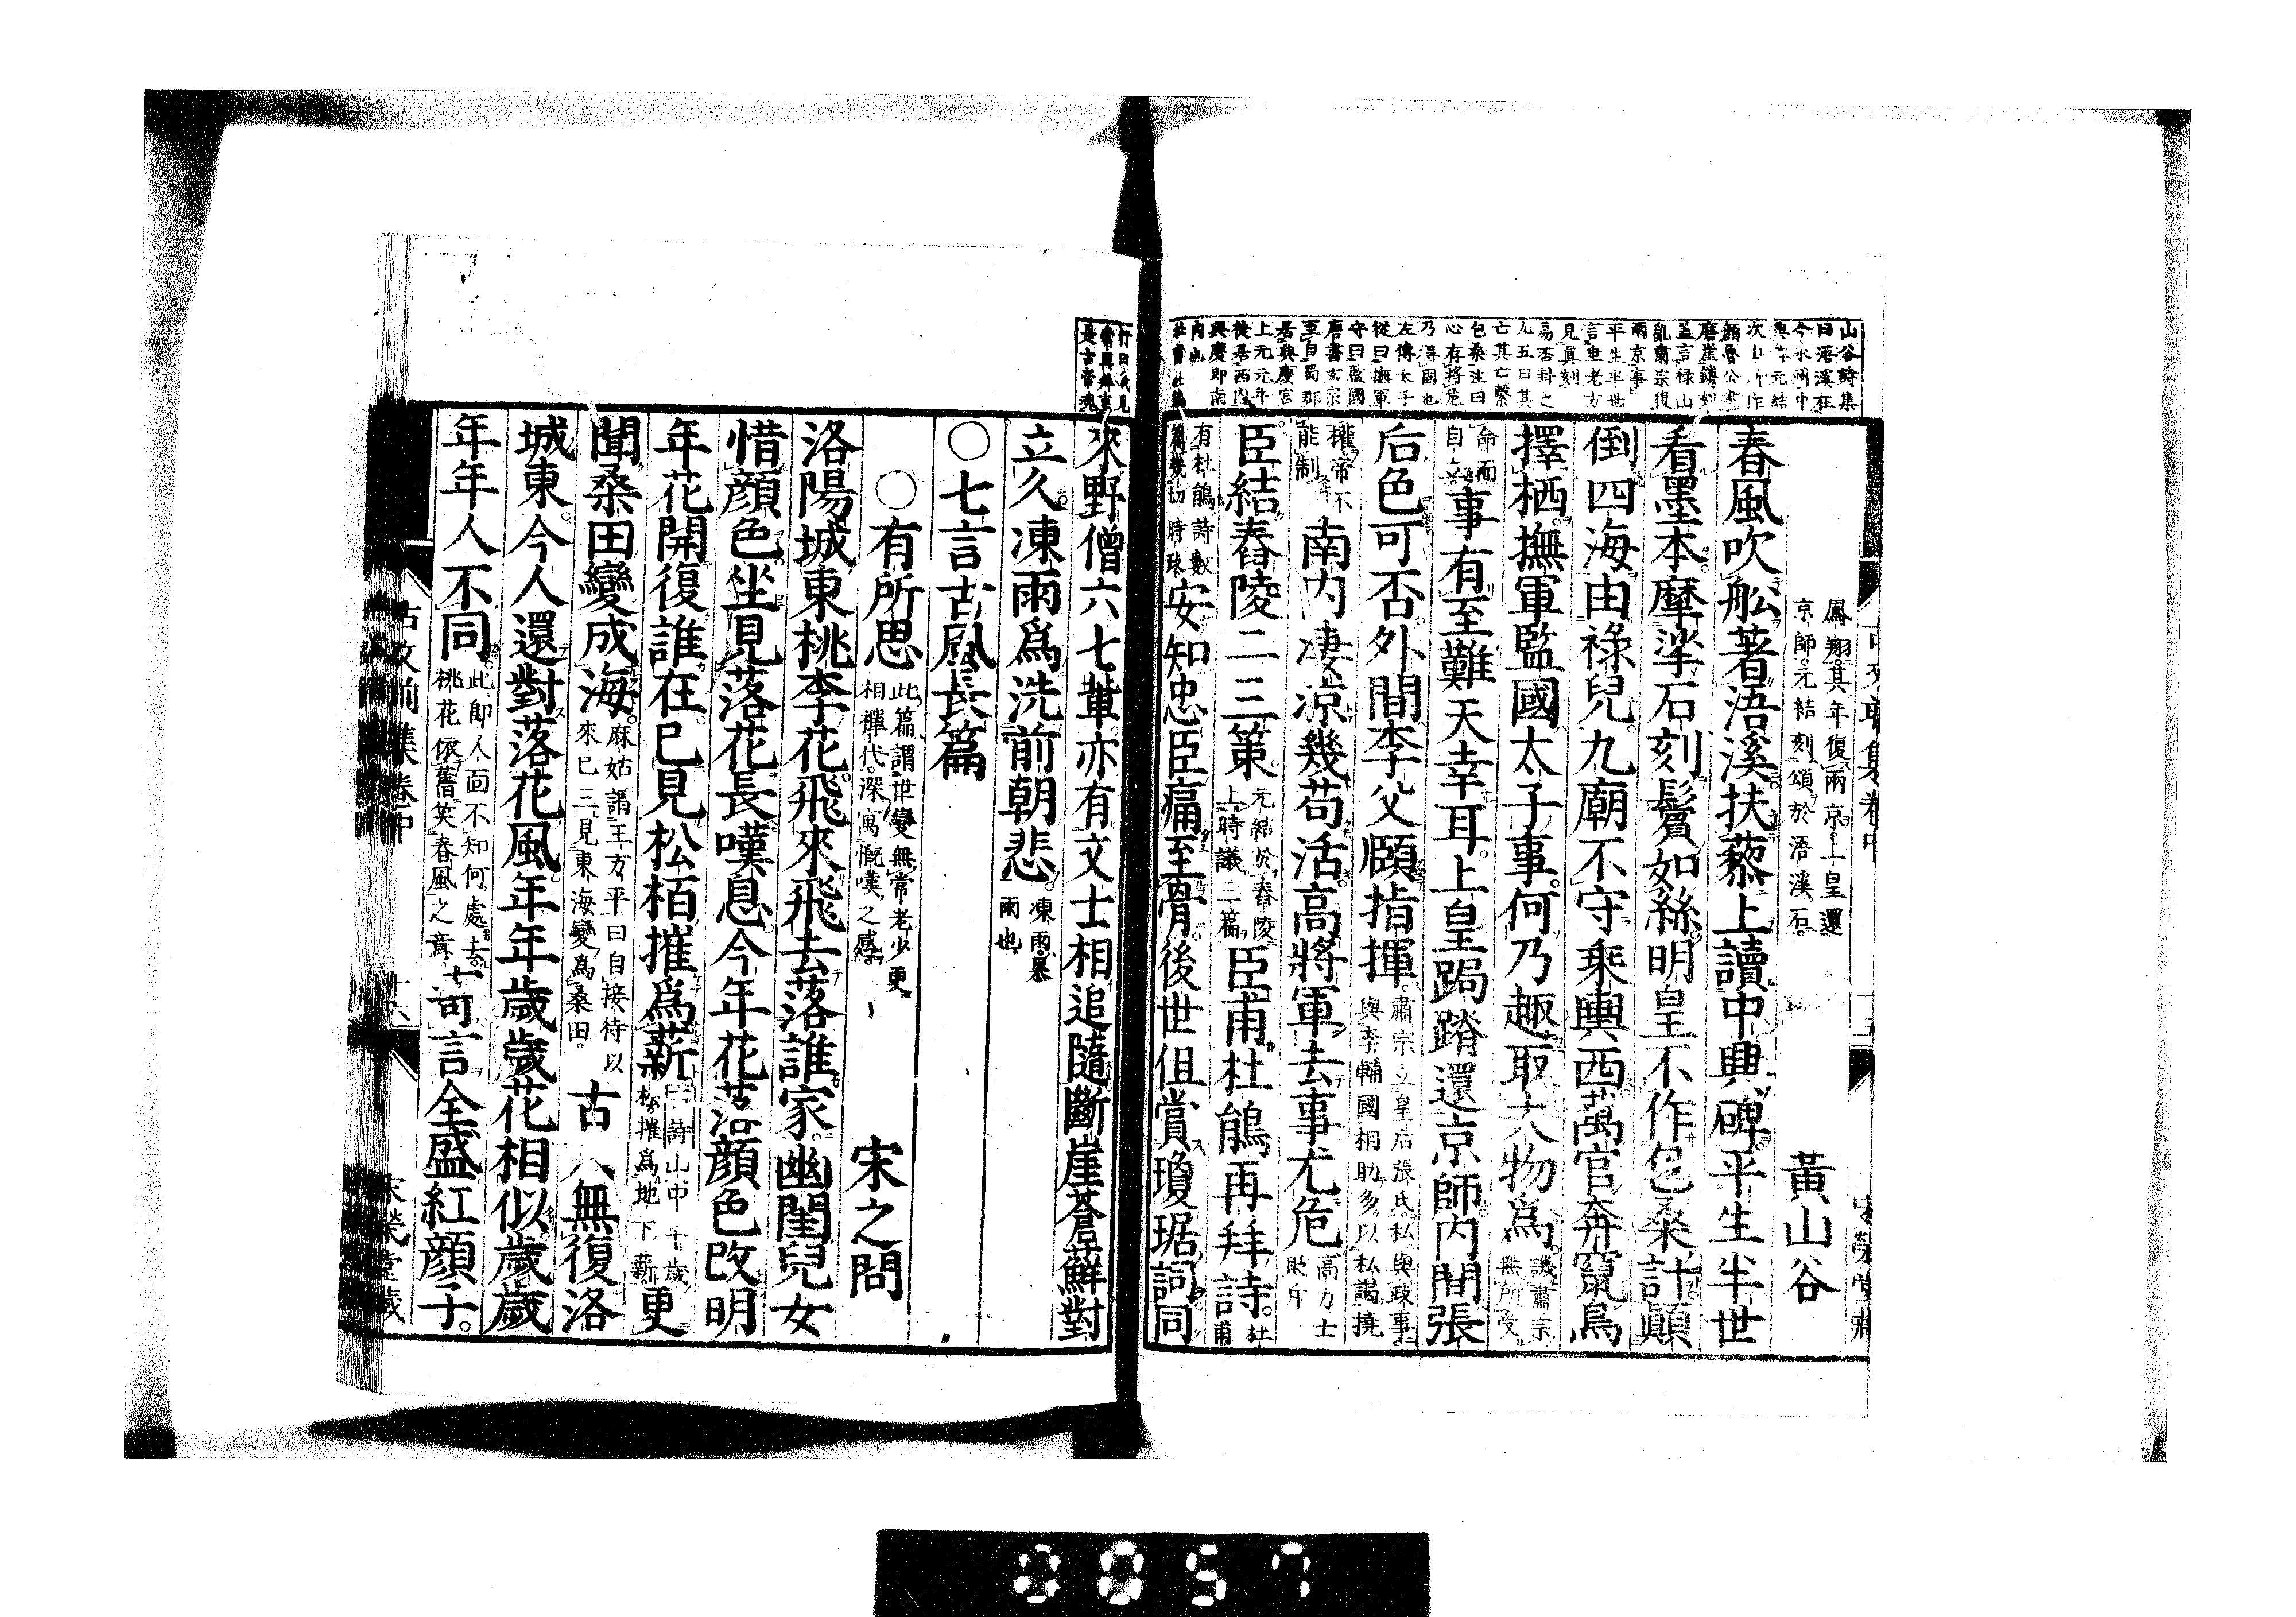 山谷詩集
曰浯溪在
今永州中
興頌元結
次山所作
顏魯公書
磨崖鐫刻
蓋言祿山
亂肅宗復
兩京事
平生半世
言垂老方
見眞刻
易否卦之
九五曰其
亡其亡繫
包桑注曰
心存將危
乃得固也
左傳太子
從曰撫軍
守曰監國
唐書玄宗
至自蜀郡
居興慶宮
上元元年
徙居西內
興慶即南
內也
鳳翔其年復兩京上皇還
京師元結刻頌於浯溪石
黃山谷
春風吹舩著浯溪扶藜上讀中興碑平生半世
看墨本摩挲石刻鬢如絲明皇不作包桑計顛
倒四海由祿兒九廟不守乘輿西萬官奔竄烏
擇栖撫軍監國太子事何乃趣取大物爲
譏肅宗
無所受
命而
自立
事有至難天幸耳上皇跼蹐還京師內間張
后色可否外間李父頤指揮
肅宗立皇后張氏私與政事
與李輔國相助多以私謁撓
權帝不
能制
南內凄凉幾苟活高將軍去事尤危
高力士
貶斥
臣結舂陵二三策
元結於舂陵
上時議三篇
臣甫杜鵑再拜詩
杜
甫
有杜鵑詩數
篇譏切時政
安知忠臣痛至骨後世但賞瓊琚詞同
來野僧六七輩亦有文士相追隨斷崖蒼蘚對
立久凍雨爲洗前朝悲
凍雨暴
雨也
○七言古風長篇
○有所思
此篇謂世變無常老少更
相禪代深寓慨嘆之感
宋之問
洛陽城東桃李花飛來飛去落誰家幽閨兒女
惜顏色坐見落花長嘆息今年花落顏色改明
年花開復誰在已見松栢摧爲薪
古詩山中千歲
松摧爲地下薪
更
聞桑田變成海
麻姑謂王方平曰自接待以
來已三見東海變爲桑田
古人無復洛
城東今人還對落花風年年歲歲花相似歲歲
年年人不同
此即人面不知何處去
桃花依舊笑春風之意
寄言全盛紅顏子
古文前集卷中
0057